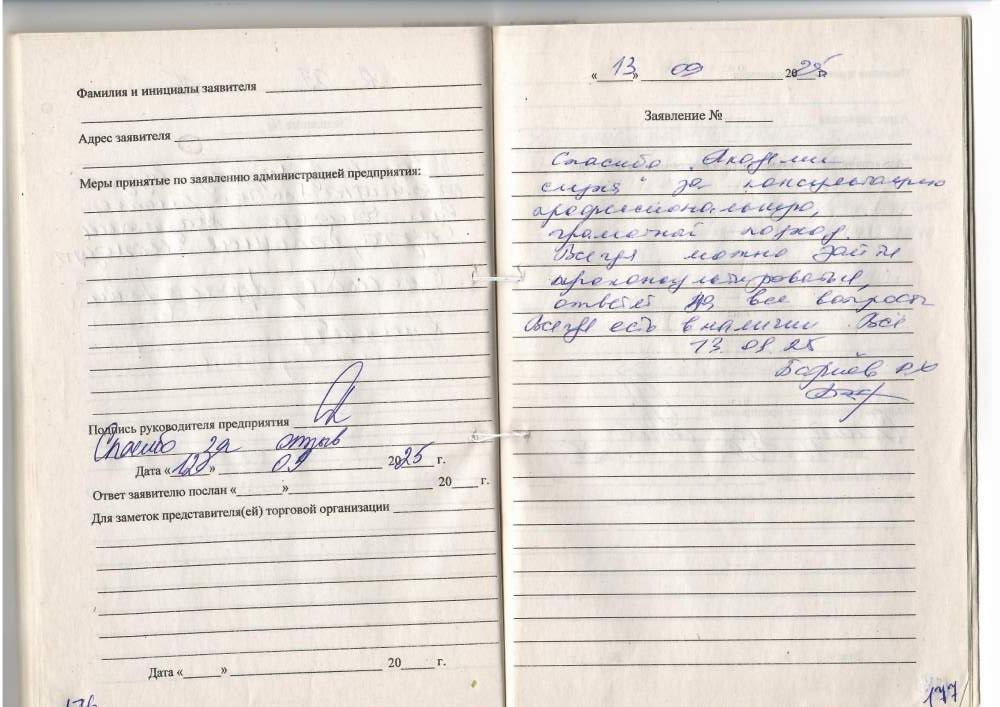 Фамилия и инициалы заявителя
Адрес заявителя
Меры принятые по заявлению администрацией предприятия:
Подпись руководителя предприятия
Спасибо за отзыв
Дата «12» 09 2025 г.
Ответ заявителю послан «     »      20    г.
Для заметок представителя(ей) торговой организации
Дата «     »      20    г.
176
« 13 » 09 2025 г.
Заявление №
Спасибо "Академии
слуха" за консультацию
профессиональную,
грамотный подход.
Всегда можно зайти
проконсультироваться,
ответят на все вопросы
Всегда есть в наличии Все
13.09.25
Бариев Р.Х
177